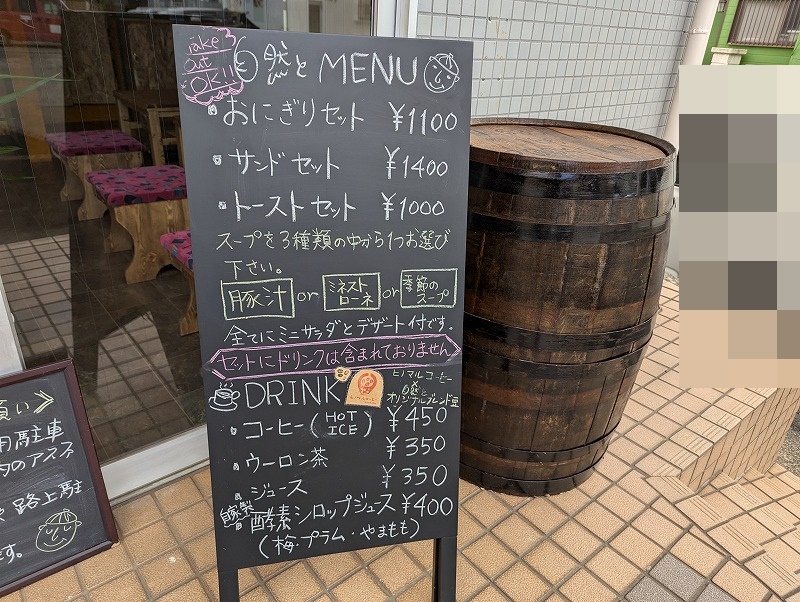 Take
out
OK!!
然と MENU
・おにぎりセット ¥1100
・サンドセット ¥1400
・トーストセット ¥1000
スープを3種類の中から1つお選び
下さい。
豚汁 or ミネストローネ or 季節のスープ
全てにミニサラダとデザート付です。
セットにドリンクは含まれておりません
DRINK
ヒノマルコーヒー
オリジナルブレンド豆
・コーヒー(HOT ICE) ¥450
・ウーロン茶 ¥350
・ジュース ¥350
自家製 酵素シロップジュース ¥400
(梅・プラム・やまもも)
願い≫
用駐車
内のアスス
路上駐
す。